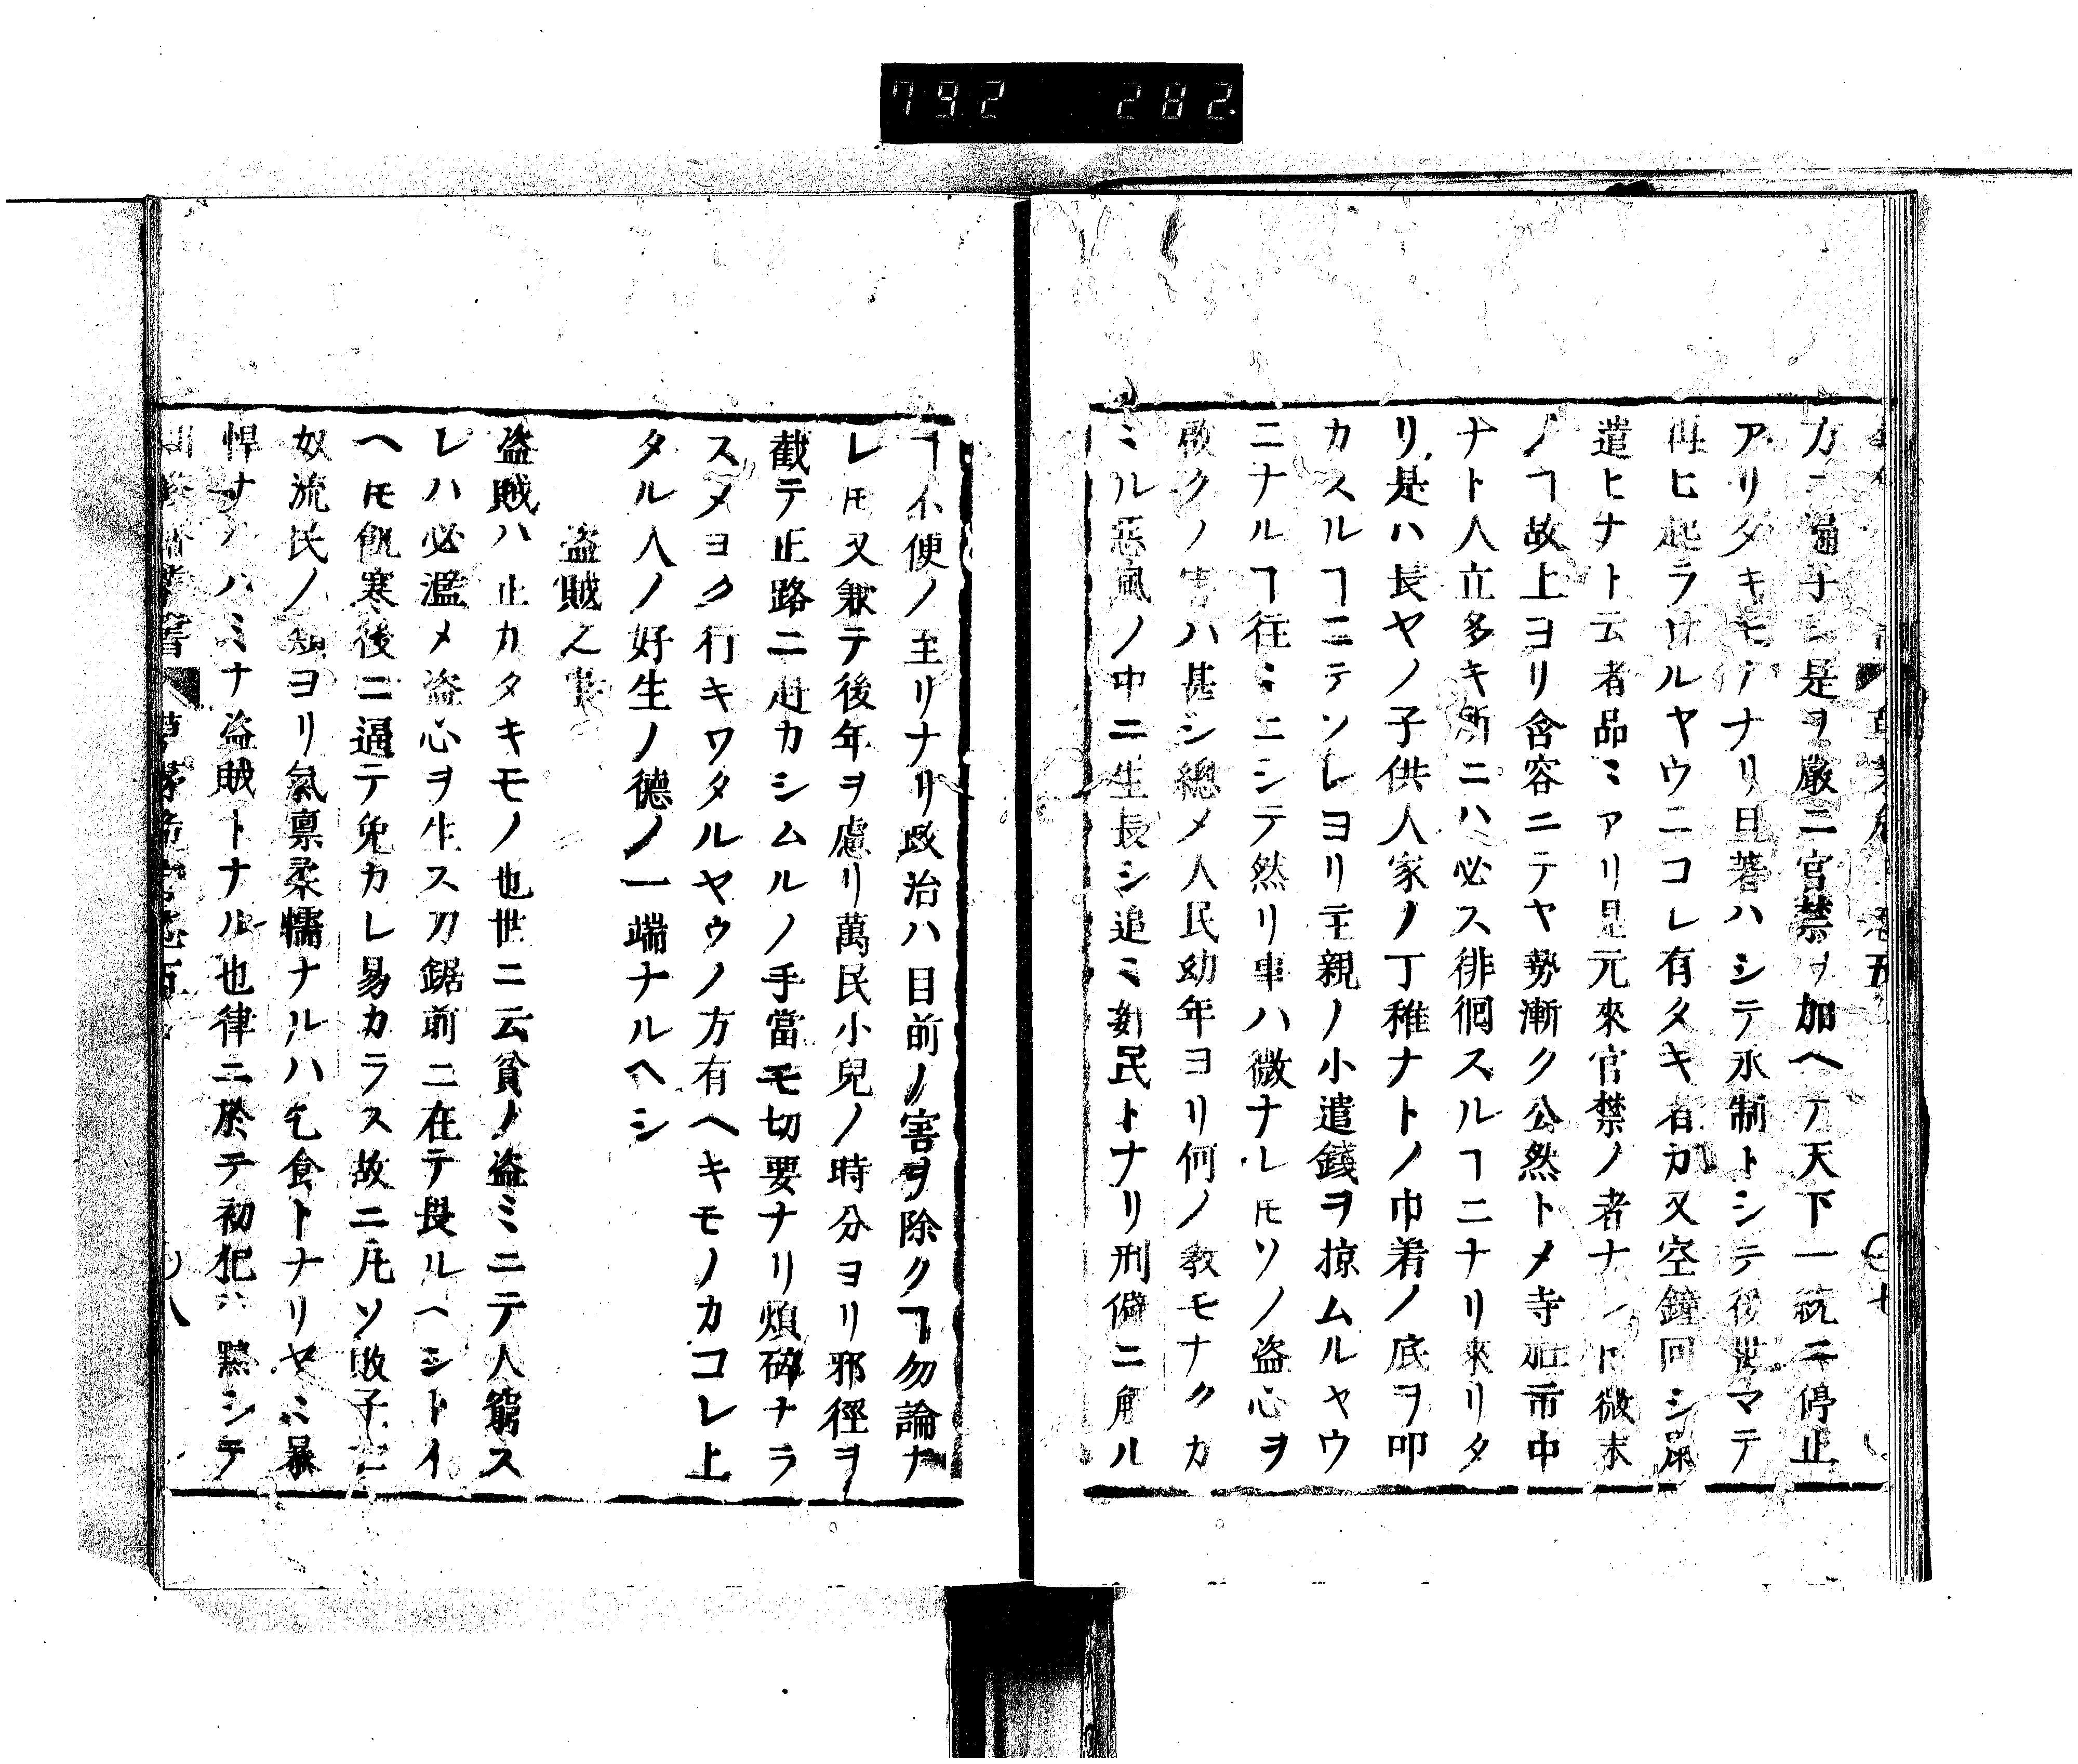 792 282
力ニ過テシ是ヲ嚴ニ官禁ヲ加ヘテ天下一統ニ停止
アリタキモノナリ且著ハシテ永制トシテ後世マテ
再ヒ起ラサルヤウニコレ有タキ者カ又空鐘回シ
遣ヒナト云者品ミアリ是元來官禁ノ者ナレ𪜈微末
ノヿ故上ヨリ含容ニテヤ勢漸ク公然トメ寺社市中
ナト人立多キ所ニハ必ス徘徊スルヿニナリ來リタ
リ是ハ長ヤノ子供人家ノ丁稚ナトノ巾着ノ底ヲ叩
カスルヿニテソレヨリ主親ノ小遣錢ヲ掠ムルヤウ
ニナルヿ往ミニシテ然リ事ハ微ナレ𪜈ソノ盗心ヲ
啟クノ害ハ甚シ總メ人民幼年ヨリ何ノ教モナクカ
ミル惡風ノ中ニ生長シ追ミ姧民トナリ刑僻ニ觸ル
ヿ不便ノ至リナリ政治ハ目前ノ害ヲ除クヿ勿論ナ
レ𪜈又兼テ後年ヲ慮リ萬民小兒ノ時分ヨリ邪徑ヲ
截テ正路ニ赴カシムルノ手當モ切要ナリ煩碎ナラ
スメヨク行キワタルヤウノ方有ヘキモノカコレ上
タル人ノ好生ノ德ノ一端ナルヘシ
盗賊之事
盗賊ハ止カタキモノ也世ニ云貧ノ盗ミニテ人窮ス
レハ必濫メ盗心ヲ生ス刀鋸前ニ在テ畏ルヘシトイ
ヘ𪜈飢寒後ニ逼テ免カレ易カラス故ニ凡ソ敗子亡
奴流民ノ類ヨリ氣禀柔懦ナルハ乞食トナリヤミ暴
悍ナルハミナ盗賊トナル也律ニ於テ初犯ハ黥シテ